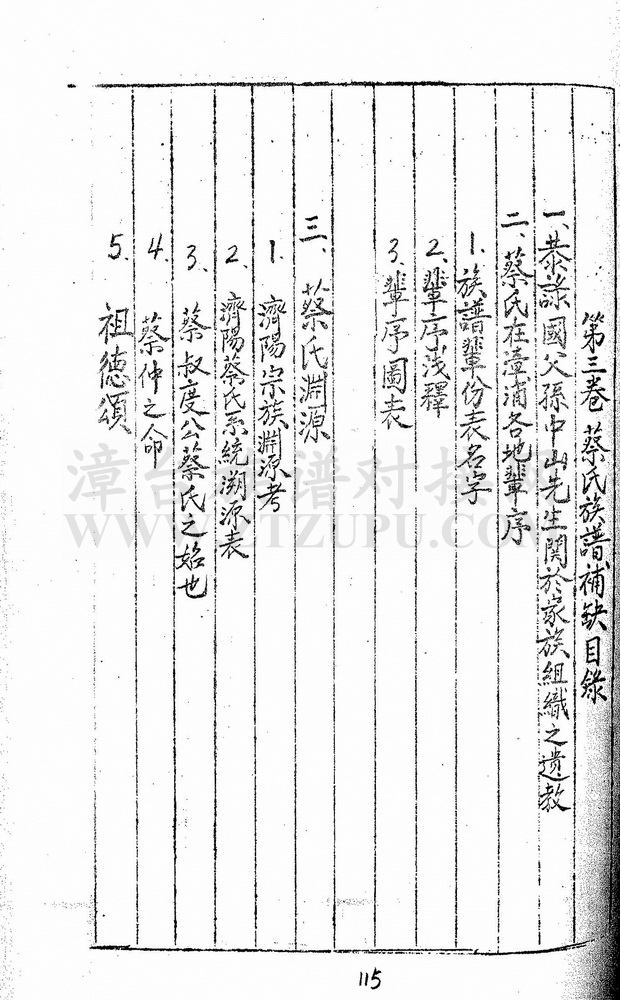 第三卷 蔡氏族譜補缺目錄
一、恭錄國父孫中山先生関於家族組織之遺教
二、蔡氏在漳浦各地輩序
1. 族譜輩份表名字
2. 輩序浅釋
3. 輩序圖表
三、蔡氏淵源
1. 濟陽宗族淵源考
2. 濟陽蔡氏系統溯源表
3. 蔡叔度公蔡氏之始也
4. 蔡仲之命
5. 祖德頌
115
漳台族谱对接网
WWW.ZTZUPU.COM